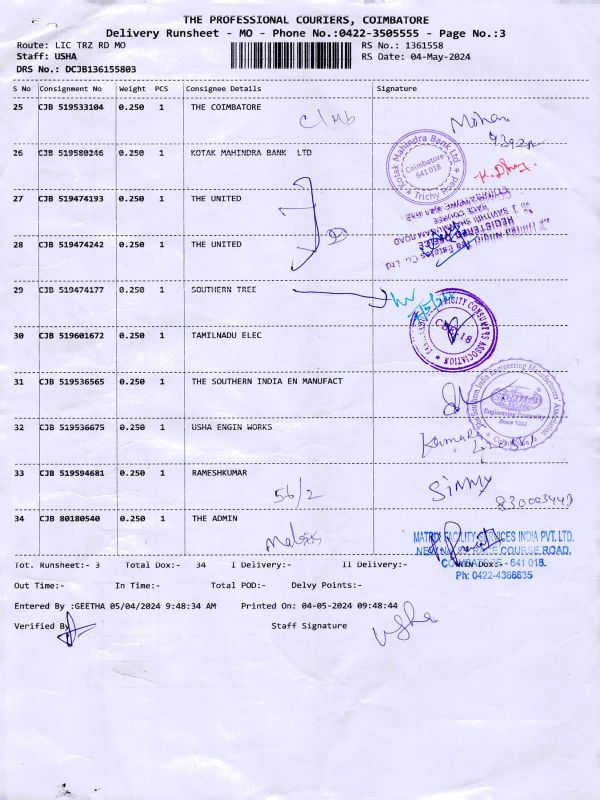 THE PROFESSIONAL COURIERS, COIMBATORE
Delivery Runsheet - MO - Phone No.:0422-3505555 - Page No.:3
Route: LIC TRZ RD MO RS No.: 1361558
Staff: USHA RS Date: 04-May-2024
DRS No.: DCJB136155803
S No Consignment No Weight PCS Consignee Details Signature
25 CJB 519533104 0.250 1 THE COIMBATORE
Mohan
26 CJB 519580246 0.250 1 KOTAK MAHINDRA BANK LTD
Kotak Mahindra Bank Ltd.
Coimbatore
641 018
Trichy Road
27 CJB 519474193 0.250 1 THE UNITED
28 CJB 519474242 0.250 1 THE UNITED
29 CJB 519474177 0.250 1 SOUTHERN TREE
30 CJB 519601672 0.250 1 TAMILNADU ELEC
CBE-18
31 CJB 519536565 0.250 1 THE SOUTHERN INDIA EN MANUFACT
The Southern India Engineering Manufacturers Association
Engineering Prosperity
Since 1952
32 CJB 519536675 0.250 1 USHA ENGIN WORKS
Kumar
33 CJB 519594681 0.250 1 RAMESHKUMAR
56/2
34 CJB 80180540 0.250 1 THE ADMIN
MATRIX FACILITY SERVICES INDIA PVT. LTD.
RACE COURSE ROAD,
COIMBATORE - 641 018.
Ph: 0422-4366635
Tot. Runsheet:- 3 Total Dox:- 34 I Delivery:- II Delivery:- Dox:-
Out Time:- In Time:- Total POD:- Delvy Points:-
Entered By :GEETHA 05/04/2024 9:48:34 AM Printed On: 04-05-2024 09:48:44
Verified By Staff Signature
Usha